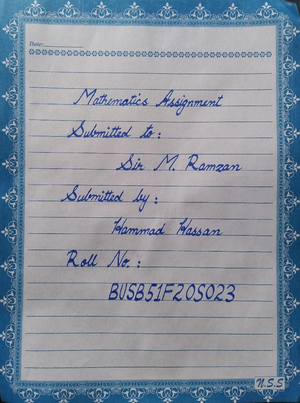 Date:
Mathematics Assignment
Submitted to:
Sir M. Ramzan
Submitted by:
Hammad Hassan
Roll No.:
BUSB51F20S023
N.S.S